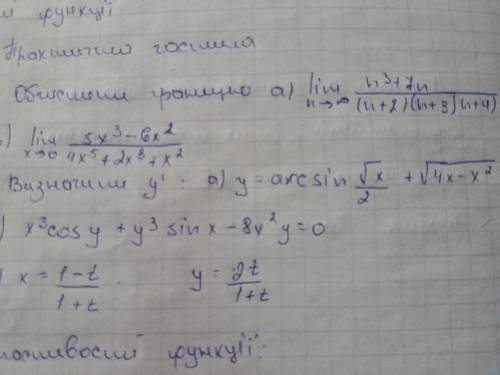 функції
Практична частина
Обчислити границю а) lim n→∞ (n³+7n)/((n+2)(n+3)(n+4))
) lim x→0 (5x³-6x²)/(4x⁵+2x⁸+x²)
Визначити y' : а) y = arcsin √x/2 + √(4x-x²)
) x³cos y + y³ sin x - 8x²y = 0
x = (1-t)/(1+t) . y = 2t/(1+t)
функції: